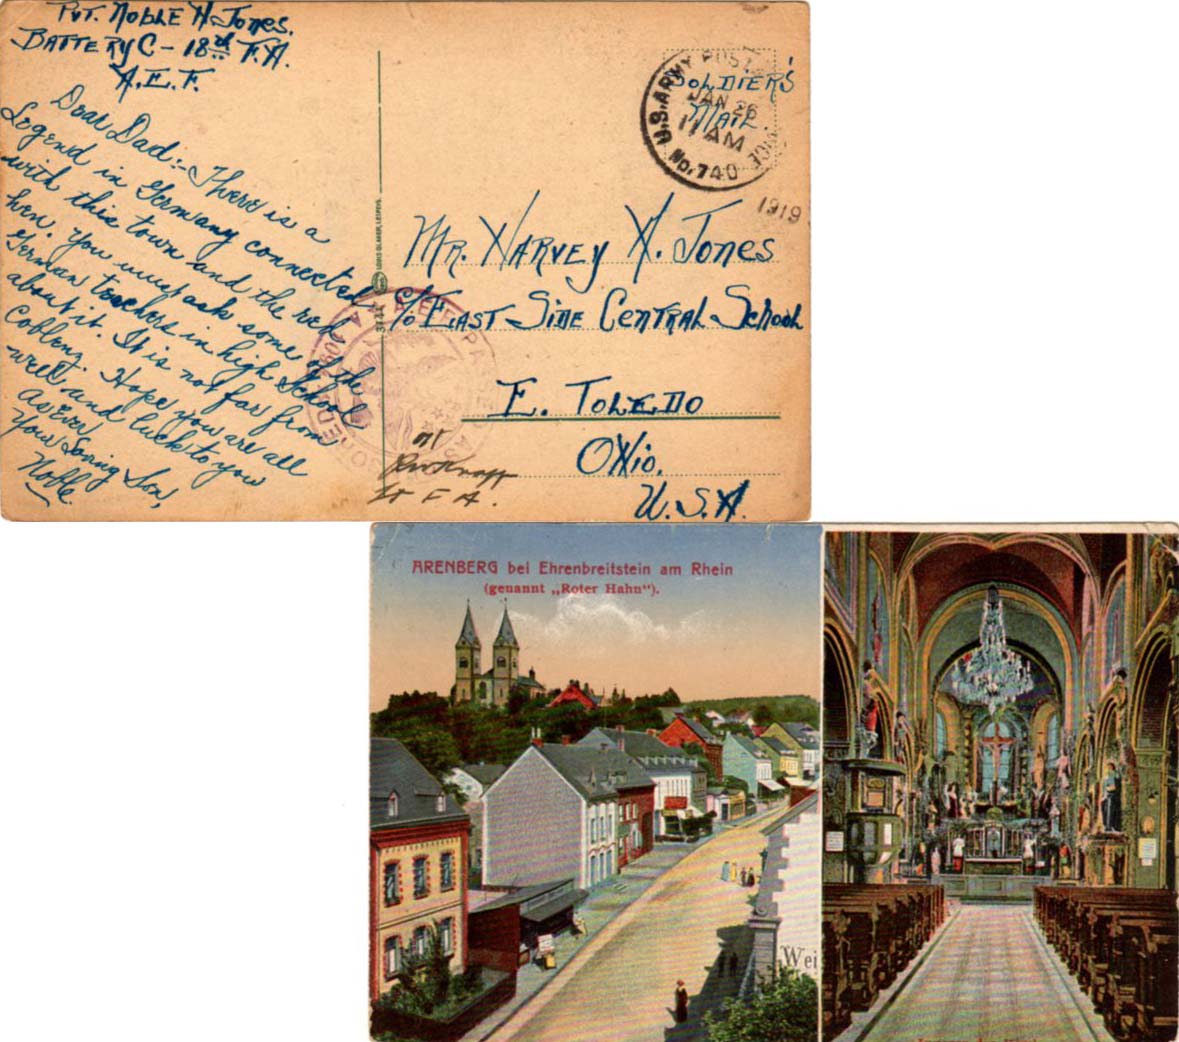 Pvt. Noble H Jones.
Battery C - 18th F.A.
A.E.F.
Dear Dad:- There is a
Legend in Germany connected
with this town and the red
hen. You must ask some of the
German teachers in high School
about it. It is not far from
Coblenz. Hope you are all
well and luck to you
As Ever
Your Loving Son,
Noble
LOUIS GLASER, LEIPZIG.
3744
A.E.F. PASSED AS CENSORED
OK
Lt F.A.
Soldier's
Mail
U.S. ARMY POST SERVICE
JAN 26
11 AM
No. 740
1919
Mr. Harvey H. Jones
c/o East Side Central School
E. Toledo
Ohio.
U.S.A.
ARENBERG bei Ehrenbreitstein am Rhein
(genannt „Roter Hahn").
Wei